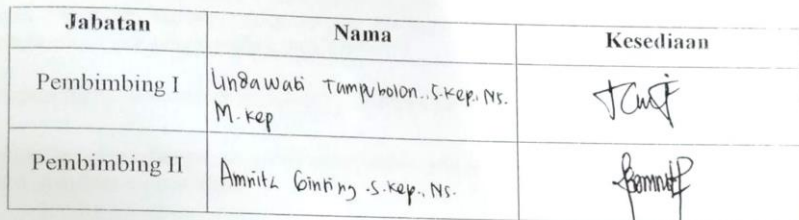 Jabatan Nama Kesediaan
Pembimbing I Lindawati Tampubolon..S.Kep., Ns.
M.kep
Pembimbing II Amnita Ginting .S.kep., Ns.